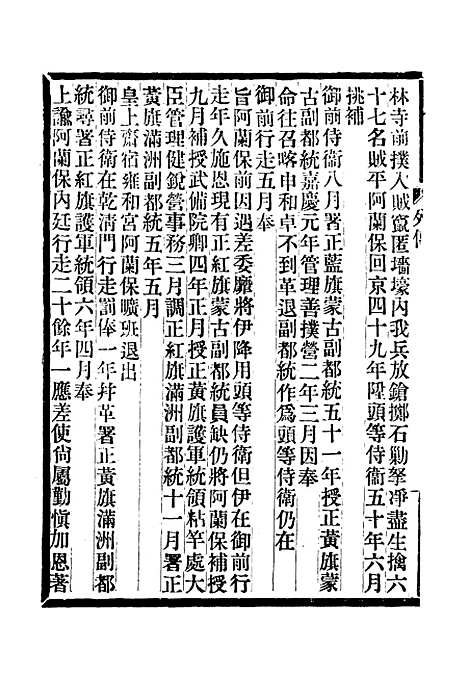 林寺前撲入賊竄匿墻壕內我兵放鎗擲石勦拏凈盡生擒六
十七名賊平阿蘭保回京四十九年陞頭等侍衞五十年六月
挑補
御前侍衞八月署正藍旗蒙古副都統五十一年授正黃旗蒙
古副都統嘉慶元年管理善撲營二年三月因奉
命往召喀申和卓不到革退副都統作爲頭等侍衞仍在
御前行走五月奉
旨阿蘭保前因遇差委靡將伊降用頭等侍衞但伊在御前行
走年久施恩現有正紅旗蒙古副都統員缺仍將阿蘭保補授
九月補授武備院卿四年正月授正黃旗護軍統領粘竿處大
臣管理健銳營事務三月調正紅旗滿洲副都統十一月署正
黃旗滿洲副都統五年五月
皇上齋宿雍和宮阿蘭保曠班退出
御前侍衞在乾清門行走罰俸一年幷革署正黃旗滿洲副都
統尋署正紅旗護軍統領六年四月奉
上諭阿蘭保內廷行走二十餘年一應差使尙屬勤愼加恩著